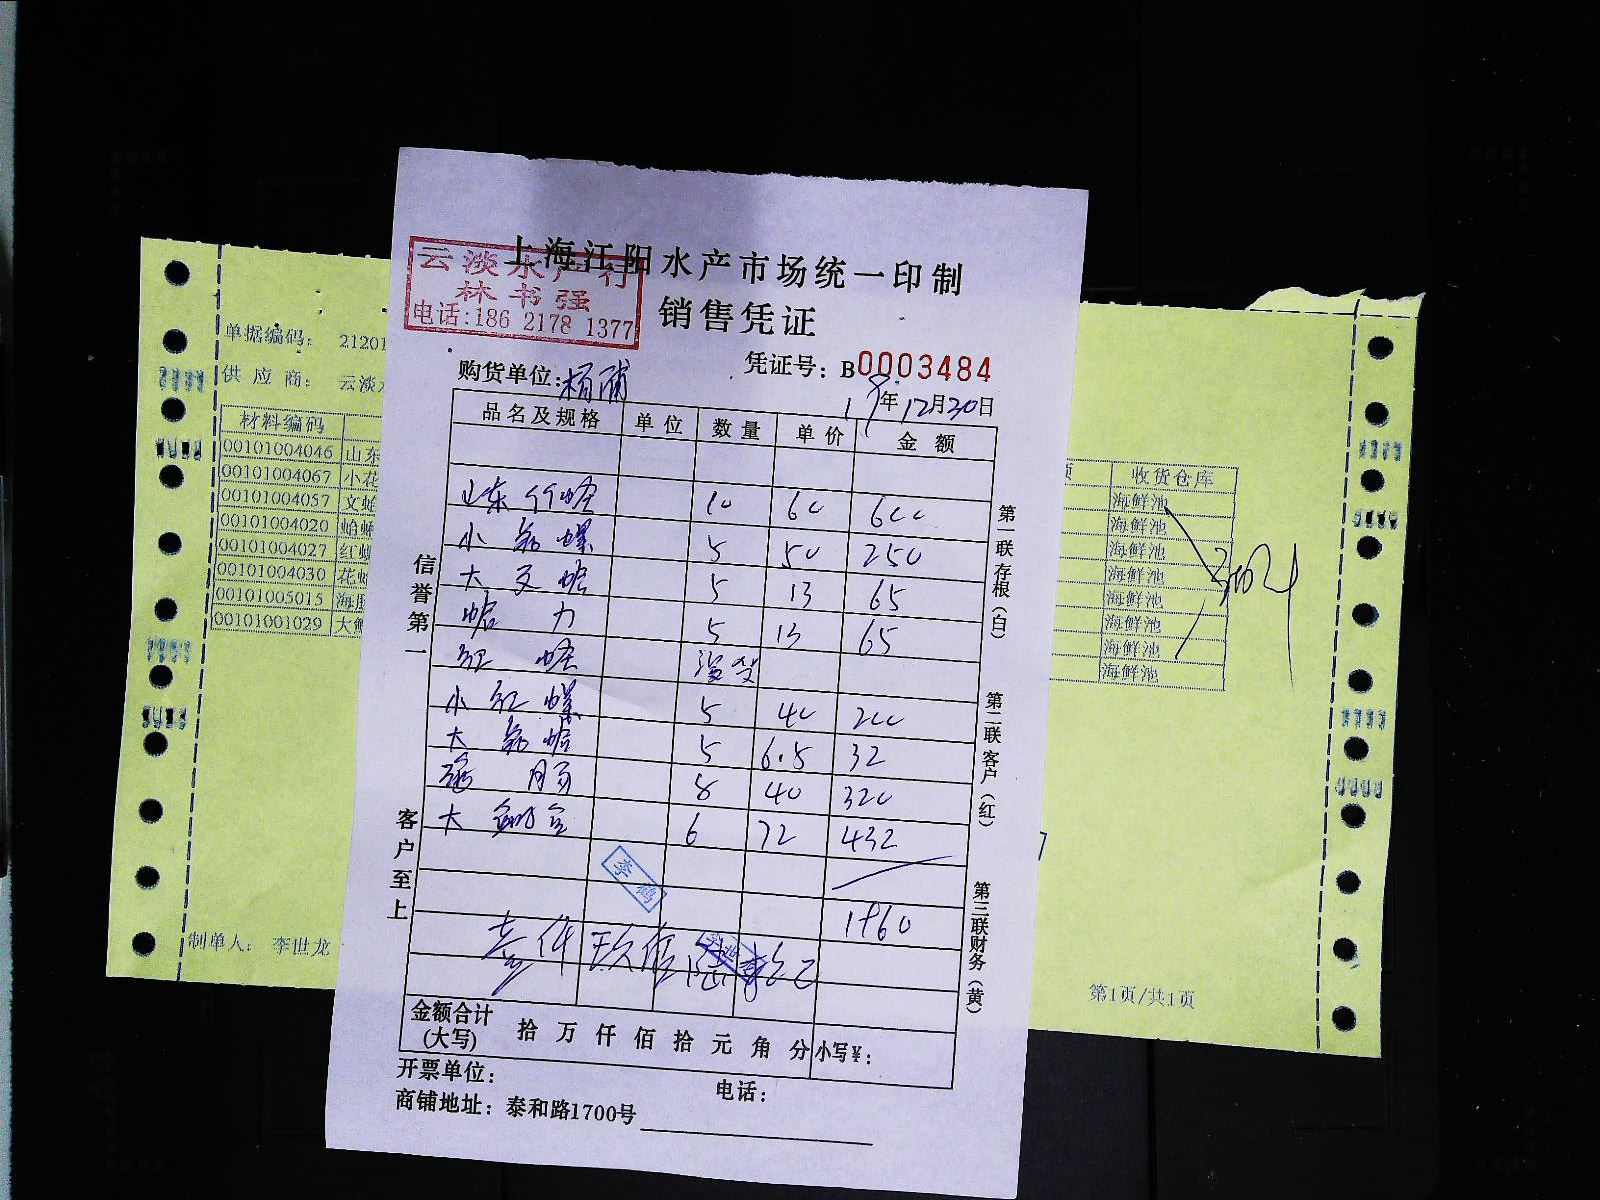 上海江阳水产市场统一印制
云淡水产行
林书强
电话:186 2178 1377
销售凭证
凭证号: B0003484
购货单位:杨浦
19年12月30日
品名及规格 单位 数量 单价 金额
山东竹蛏 10 60 600
小 螺 5 50 250
大文蛤 5 13 65
蛤力 5 13 65
红蛏 没发
小红螺 5 40 200
大 蛤 5 6.5 32
海肠 8 40 320
大 6 72 432
李鹤
1960
壹仟玖佰陆拾元
金额合计
(大写) 拾万仟佰拾元角分 小写¥:
开票单位: 电话:
商铺地址: 泰和路1700号
信誉第一
客户至上
第一联存根(白)
第二联客户(红)
第三联财务(黄)
单据编码: 21201
供应商: 云淡
材料编码
00101004046 山东
00101004067 小花
00101004057 文蛤
00101004020 蛤蜊
00101004027 红
00101004030 花
00101005015 海肠
00101001029 大
制单人: 李世龙
收货仓库
海鲜池
海鲜池
海鲜池
海鲜池
海鲜池
海鲜池
海鲜池
海鲜池
第1页/共1页